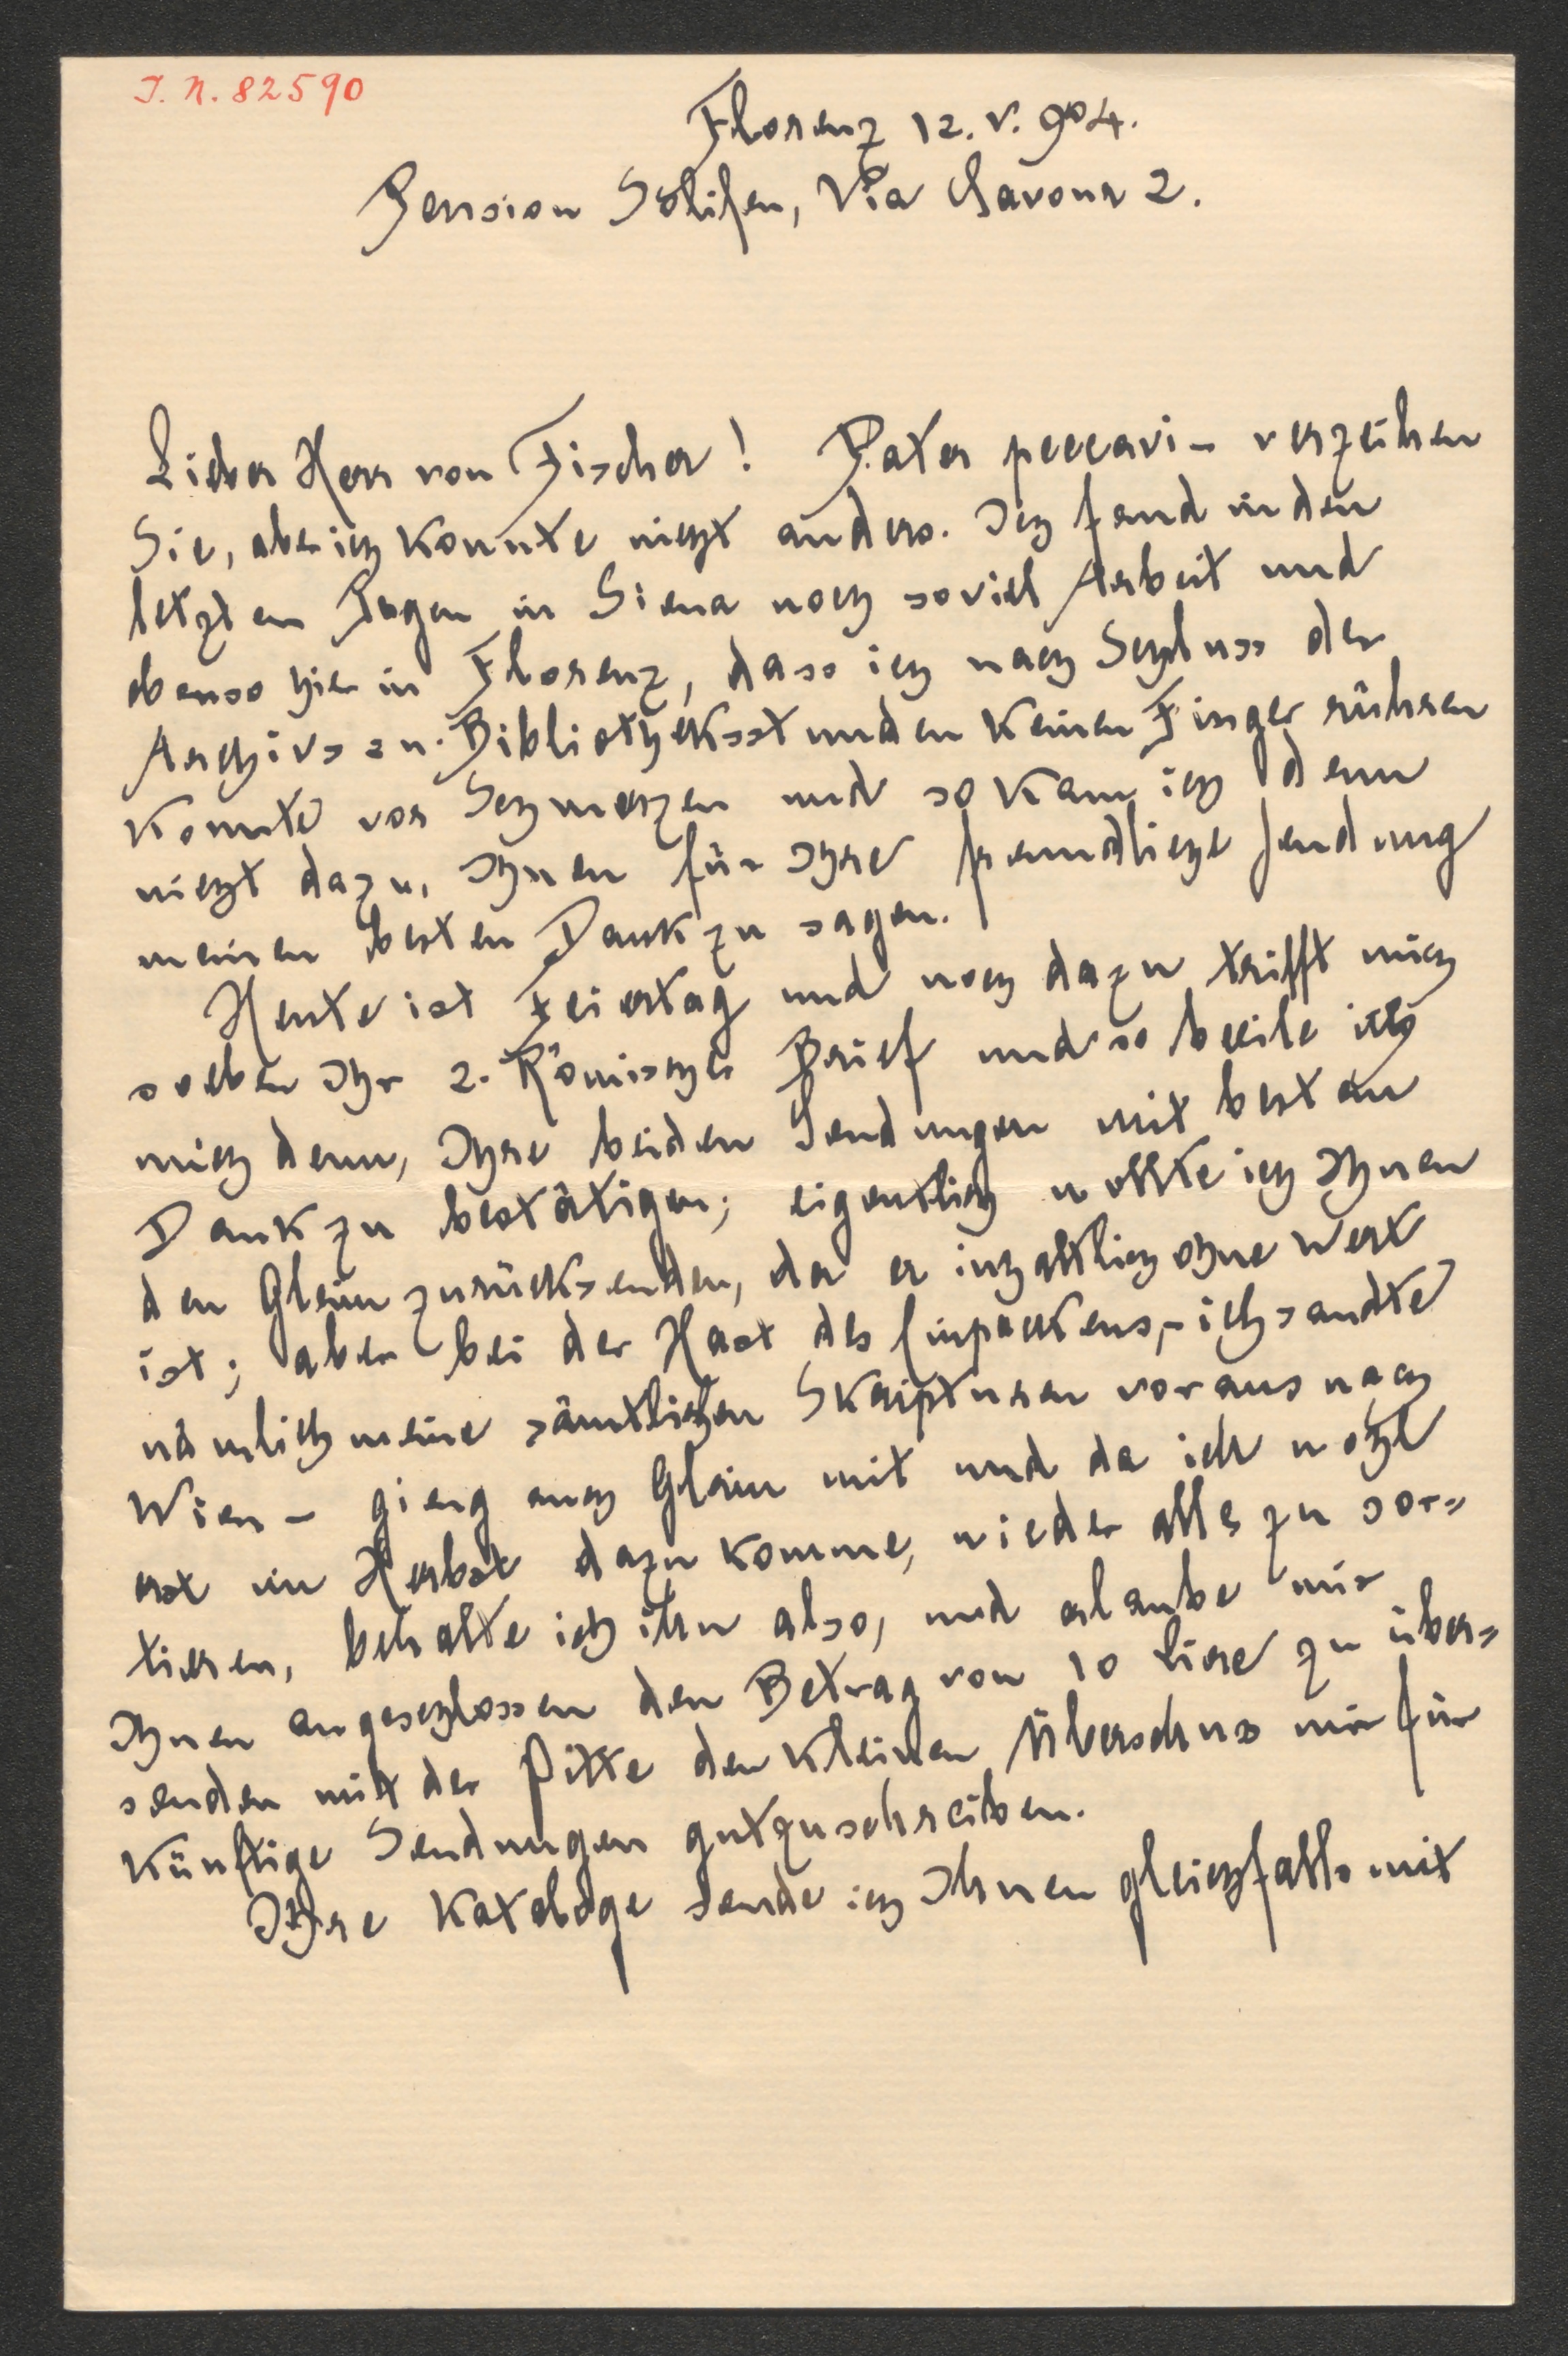 J. N. 82590
Florenz 12. V. 904.
Pension Via Cavour 2.
Lieber Herr von Fischer! Pater peccavi – verzeihen
Sie, aber ich konnte nicht anders. Ich fand in den
letzten Tagen in Siena noch soviel Arbeit und
ebenso hier in Florenz, dass ich nach Schluss der
Archivs= u. Bibliotheksstunden keinen Finger rühren
konnte vor Schmerzen und so kam ich denn
nicht dazu, Ihnen für Ihre freundliche Sendung
meinen besten Dank zu sagen.
Heute ist Feiertag und noch dazu trifft mich
soeben Ihr 2. Römischer Brief und so beeile ich
mich denn, Ihre beiden Sendungen mit besten
Dank zu bestätigen; eigentlich wollte ich Ihnen
den Gleim zurücksenden, da er inhaltlich ohne Wert
ist; aber bei der Hast des Einpackens, – ich sandte
nämlich meine sämtlichen Skripturen voraus nach
Wien – gieng auch Gleim mit und da ich wohl
erst im Herbst dazu komme, wieder alles zu sor=
tieren, behalte ich ihn also, und erlaube mir
Ihnen angeschlossen den Betrag von 10 Lire zu über=
senden mit der Bitte den kleinen Überschuss mir für
künftige Sendungen gutzuschreiben.
Ihre Kataloge sende ich Ihnen gleichfalls mit